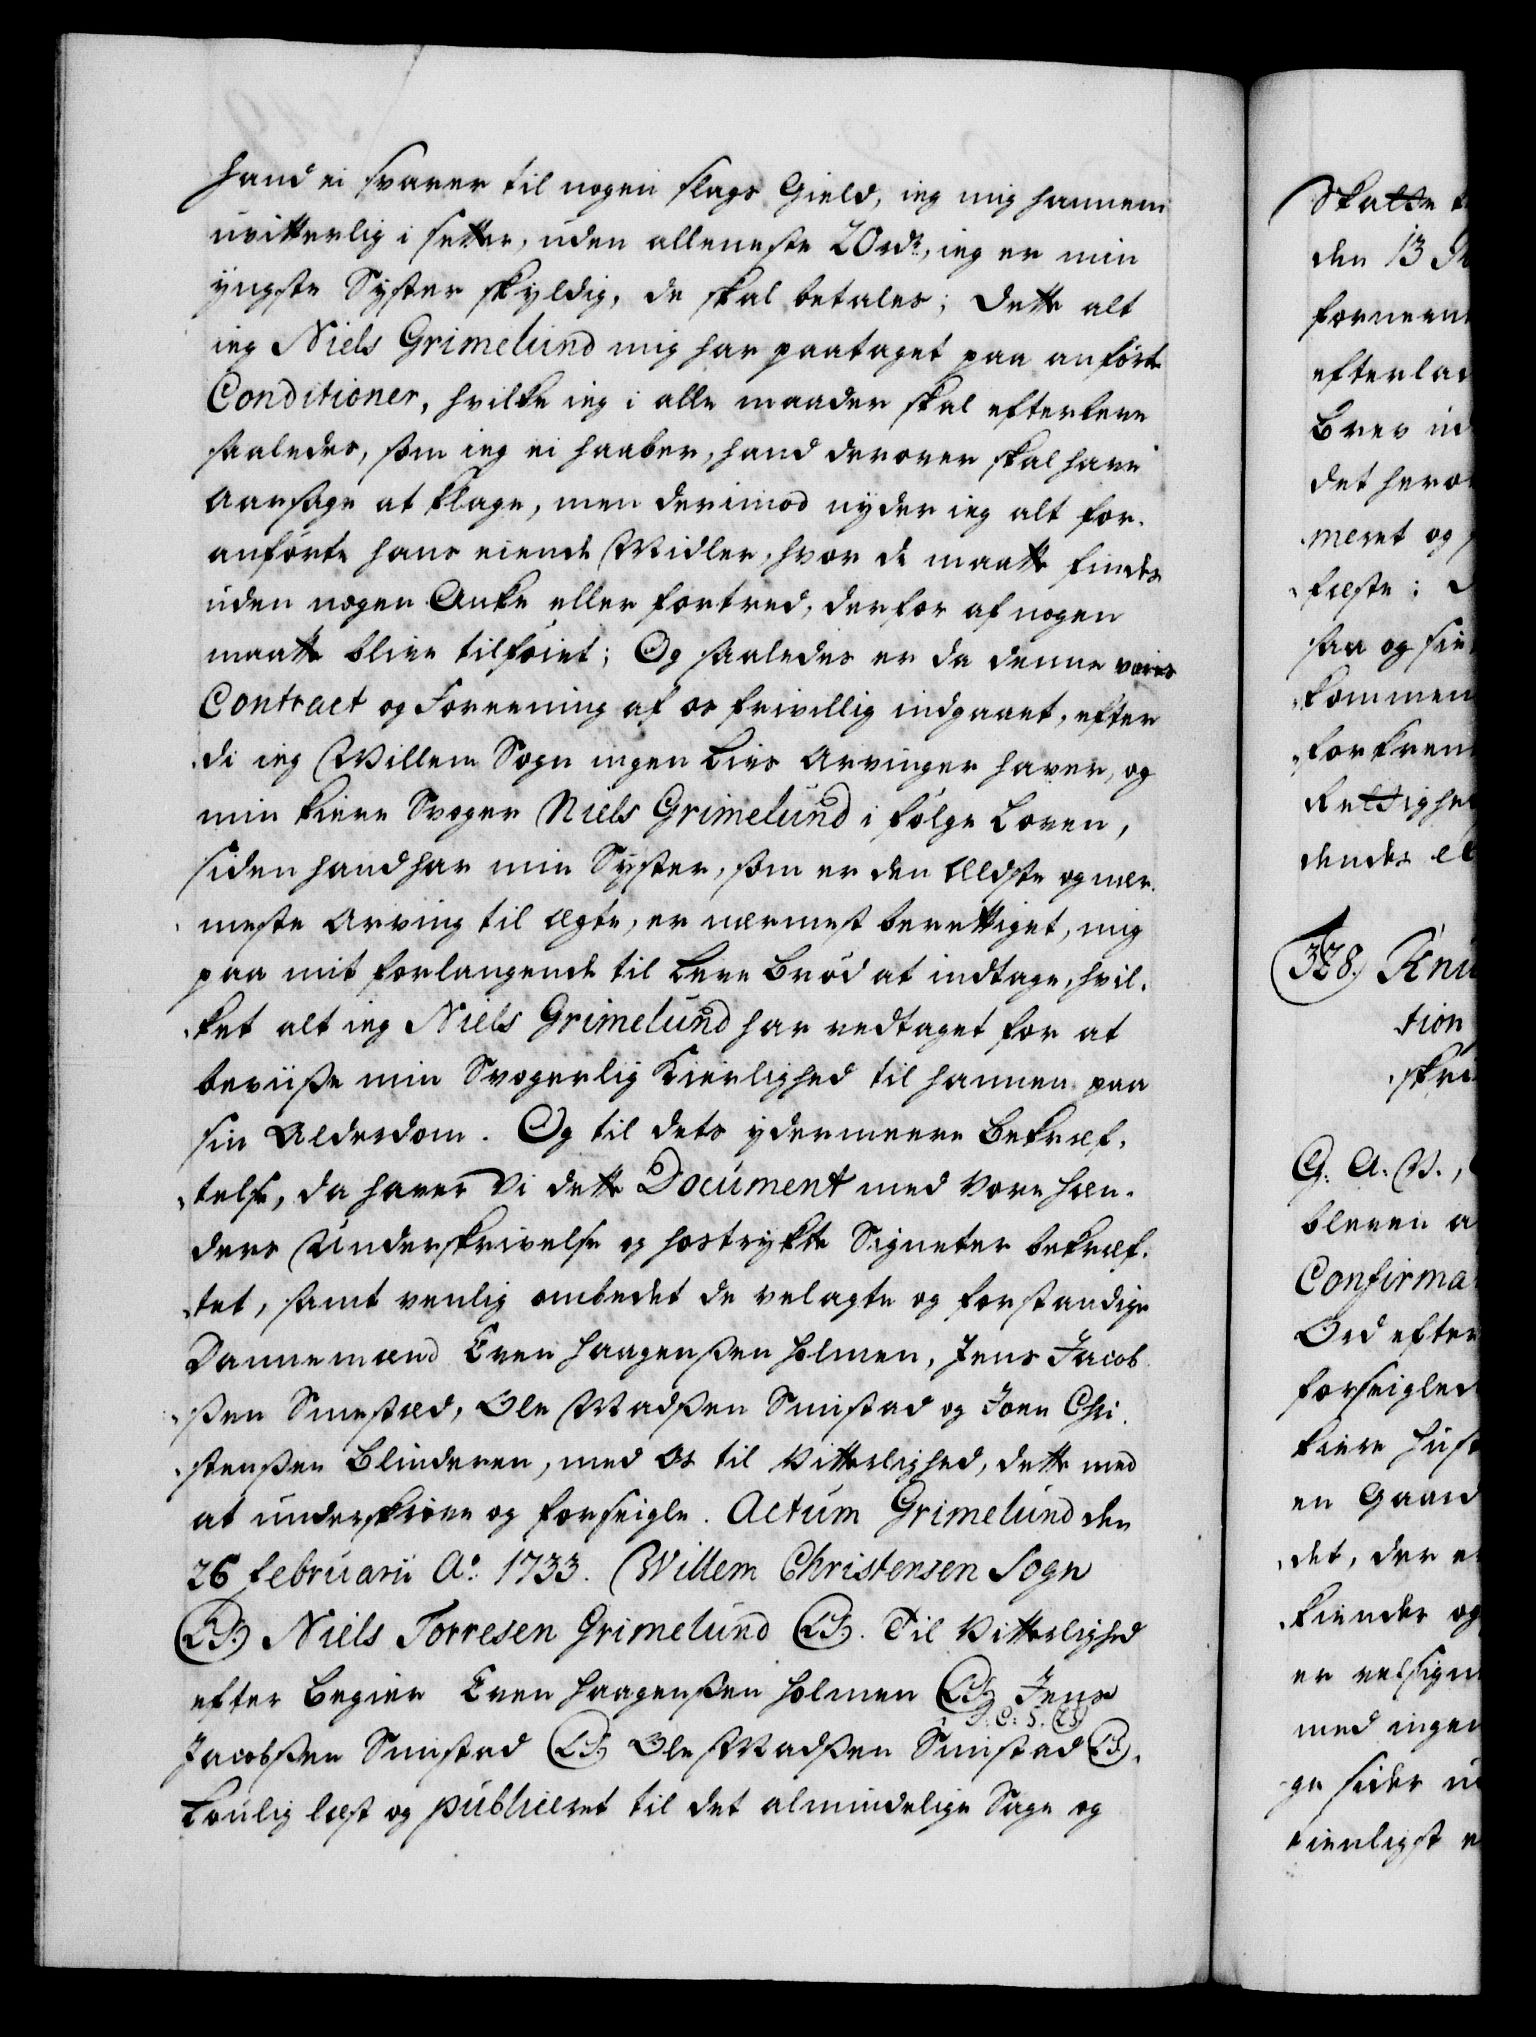 hand ei svarer til nogen slags Gield, ieg mig hannem
uvitterlig i setter, uden alleneste 20 rdr, ieg er min
yngste Syster skyldig, de skal betales; Dette alt
ieg Niels Grimelund mig har paataget paa anførte
Conditioner, hvilke ieg i alle maader skal efterleve
saaledes, som ieg ei haaber, hand derover skal have
Aarsage at klage, men derimod nyder ieg alt for-
anførte hans eiende Midler, hvor de maatte findes
uden nogen Anke eller fortred, derfor af nogen
maatte blive tilføiet; Og saaledes er da denne vores
Contract og Foreening af os frivillig indgaaet, efter
di ieg Willem Sogn ingen Livs Arvinger haver, og
min kiere Svoger Niels Grimelund i følge Loven,
siden hand har min Syster, som er den Ældste og nær-
meste Arving til ægte, er nærmest berettiget, mig
paa mit forlangende til Leve Brød at indtage, hvil-
ket alt ieg Niels Grimelund har vedtaget for at
beviise min Svogerlig Kierlighed til hannem paa
sin Alderdom. Og til dets ydermeere Bekræf-
telse, da haver Vi dette Document med Vore Hæn-
ders Underskrivelse og hostrykte Signeter bekræf-
tet, samt venlig ombedet de velagte og forstandige
Dannemænd Even Haagenßen Holmen, Jens Jacob-
ßen Smestæd, Ole Madßen Smistad og Joen Chri-
stenßen Blinderen, med Os til Vitterlighed, dette med
at underskrive og forseigle. Actum Grimelund den
26 februarii Ao: 1733. Willem Christensen Sogn
(LS.) Niels Torresen Grimelund (LS.). Til Vitterlighed
efter Begier Even Haagenßen Holmen (LS.) Jens
J: C: S. (LS)
Jacobßen Smistad (LS.) Ole Madßen Smistad (LS.).
Lovlig læst og publiceret til det almindelige Sage og
Skatte
den 13
efterla
Brev ind
det hero
meret og
fæste:
saa og
kommen
Rettighe
dendes
328. Knu
tion
skri
G. A. V.,
bleven a
Confirma
Ord efter
forseigled
kiere Hust
en Gaard
det, der e
kiender og
er velsign
med ingen
ge sider u
tienligst